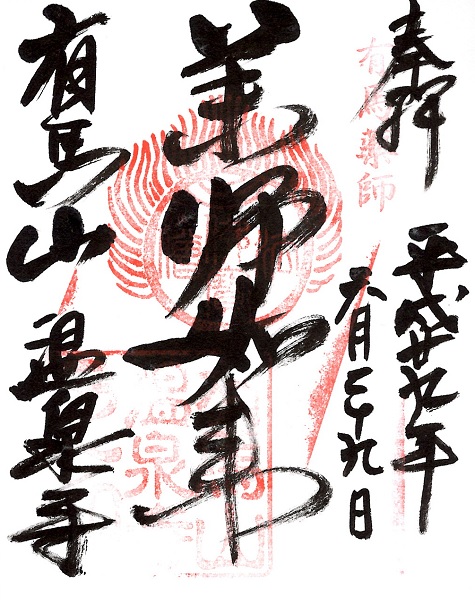 奉拝
有馬薬師
平成廿九年
六月二十九日
薬師如来
有馬山 温泉寺
温泉